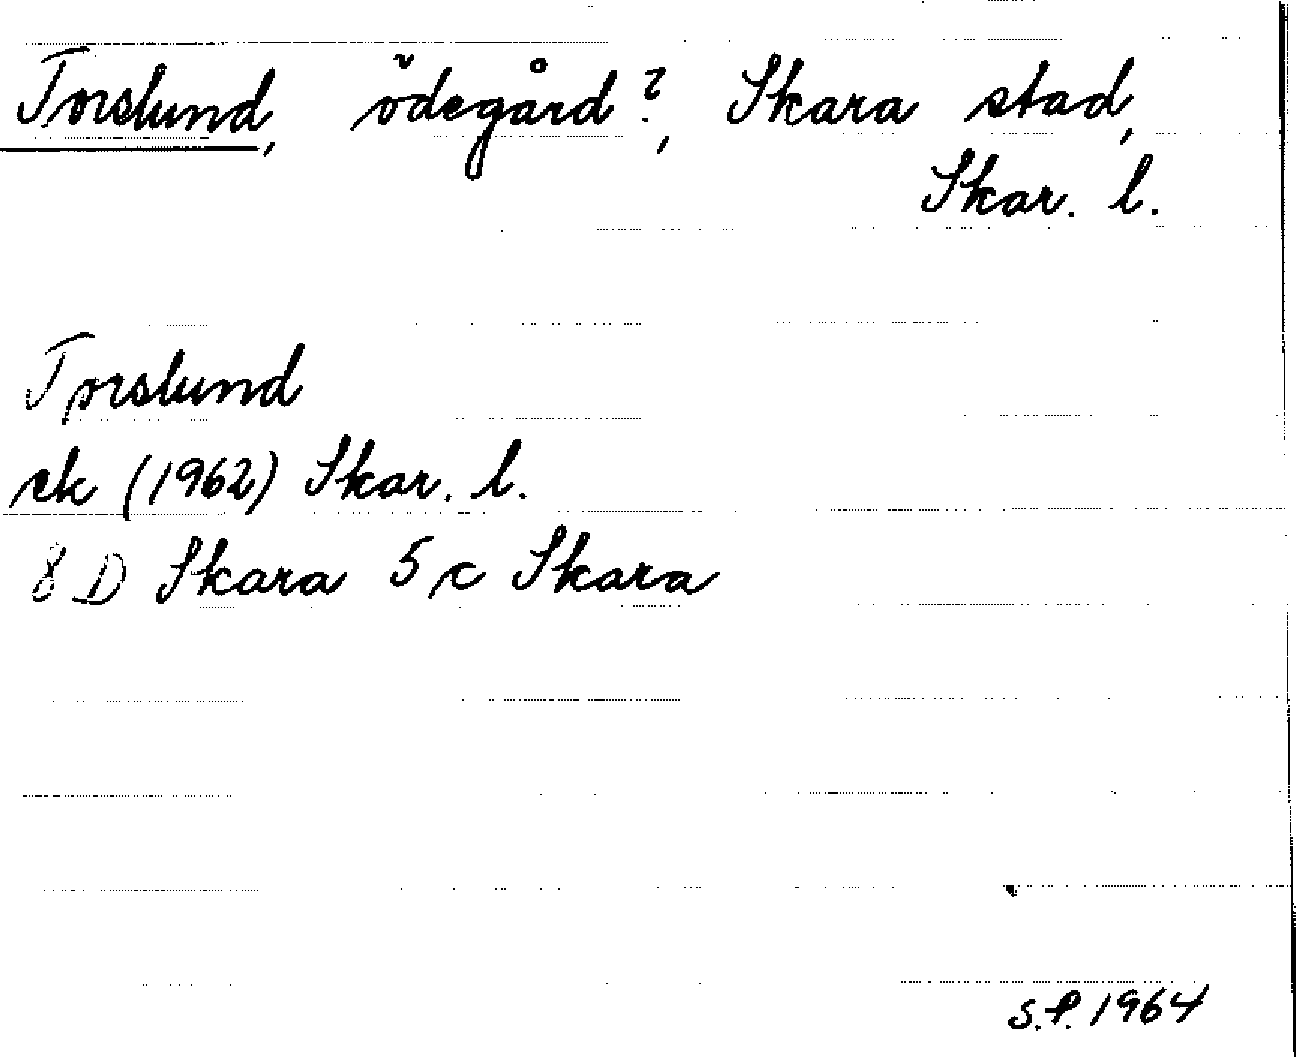 Torslund, ödegård?, Skara stad,
Skar. l.
Torslund
ek (1962) Skar. l.
8 D Skara 5 c Skara
S.P. 1964